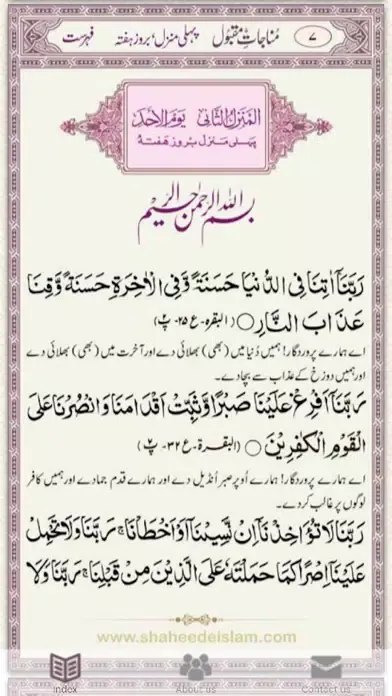 ٧ مُناجاتِ مقبُول پہلی منزل؛ بروز ہفتہ فہرست
المَنزلُ الثَّانی یَومُ الأحَد
پہلی منزل بروز ہفتہ
بسم الله الرحمن الرحيم
رَبَّنَآ اٰتِنَا فِی الدُّنْیَا حَسَنَةً وَّفِی الْاٰخِرَةِ حَسَنَةً وَّقِنَا
عَذَابَ النَّارِ ○ (البقره-ع ۲۵- پ۲)
اے ہمارے پروردگار! ہمیں دُنیا میں (بھی) بھلائی دے اور آخرت میں (بھی) بھلائی دے
اور ہمیں دوزخ کے عذاب سے بچادے۔
رَبَّنَآ اَفْرِغْ عَلَیْنَا صَبْرًا وَّثَبِّتْ اَقْدَامَنَا وَانْصُرْنَا عَلَی
الْقَوْمِ الْکٰفِرِیْنَ ○ (البقرة-ع ۳۲- پ۲)
اے ہمارے پروردگار! ہمارے اُوپر صبر اُنڈیل دے اور ہمارے قدم جمادے اور ہمیں کافر
لوگوں پر غالب کردے۔
رَبَّنَا لَا تُؤَاخِذْنَآ اِنْ نَّسِیْنَآ اَوْ اَخْطَاْنَا ۚ رَبَّنَا وَلَا تَحْمِلْ
عَلَیْنَآ اِصْرًا کَمَا حَمَلْتَهٗ عَلَی الَّذِیْنَ مِنْ قَبْلِنَا ۚ رَبَّنَا وَلَا
www.shaheedeislam.com
Index About us Contact us